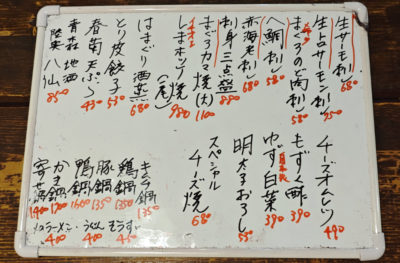 生サーモン刺し 680
生トロサーモン刺し 950
まぐろのど肉刺し 580
〃 鯛刺し 680
赤海老刺し 680
刺身三点盛 880
まぐろカマ焼(大) 1100
しまホッケ焼(尾) 980
はまぐり酒蒸 680
とり皮餃子 530
春菊天ぷら 430
青森地酒
陸奥八仙 850
チーズオムレツ 490
もずく酢 390
ゆず白菜 390
明太子おろし 550
スペシャル
チーズ焼 680
キムチ鍋 1350
鶏鍋 1350
豚鍋 1350
鴨鍋 1600
かき鍋 1700
寄せ鍋 1900
〆ラーメン 400
うどん 400
ぞうすい 450